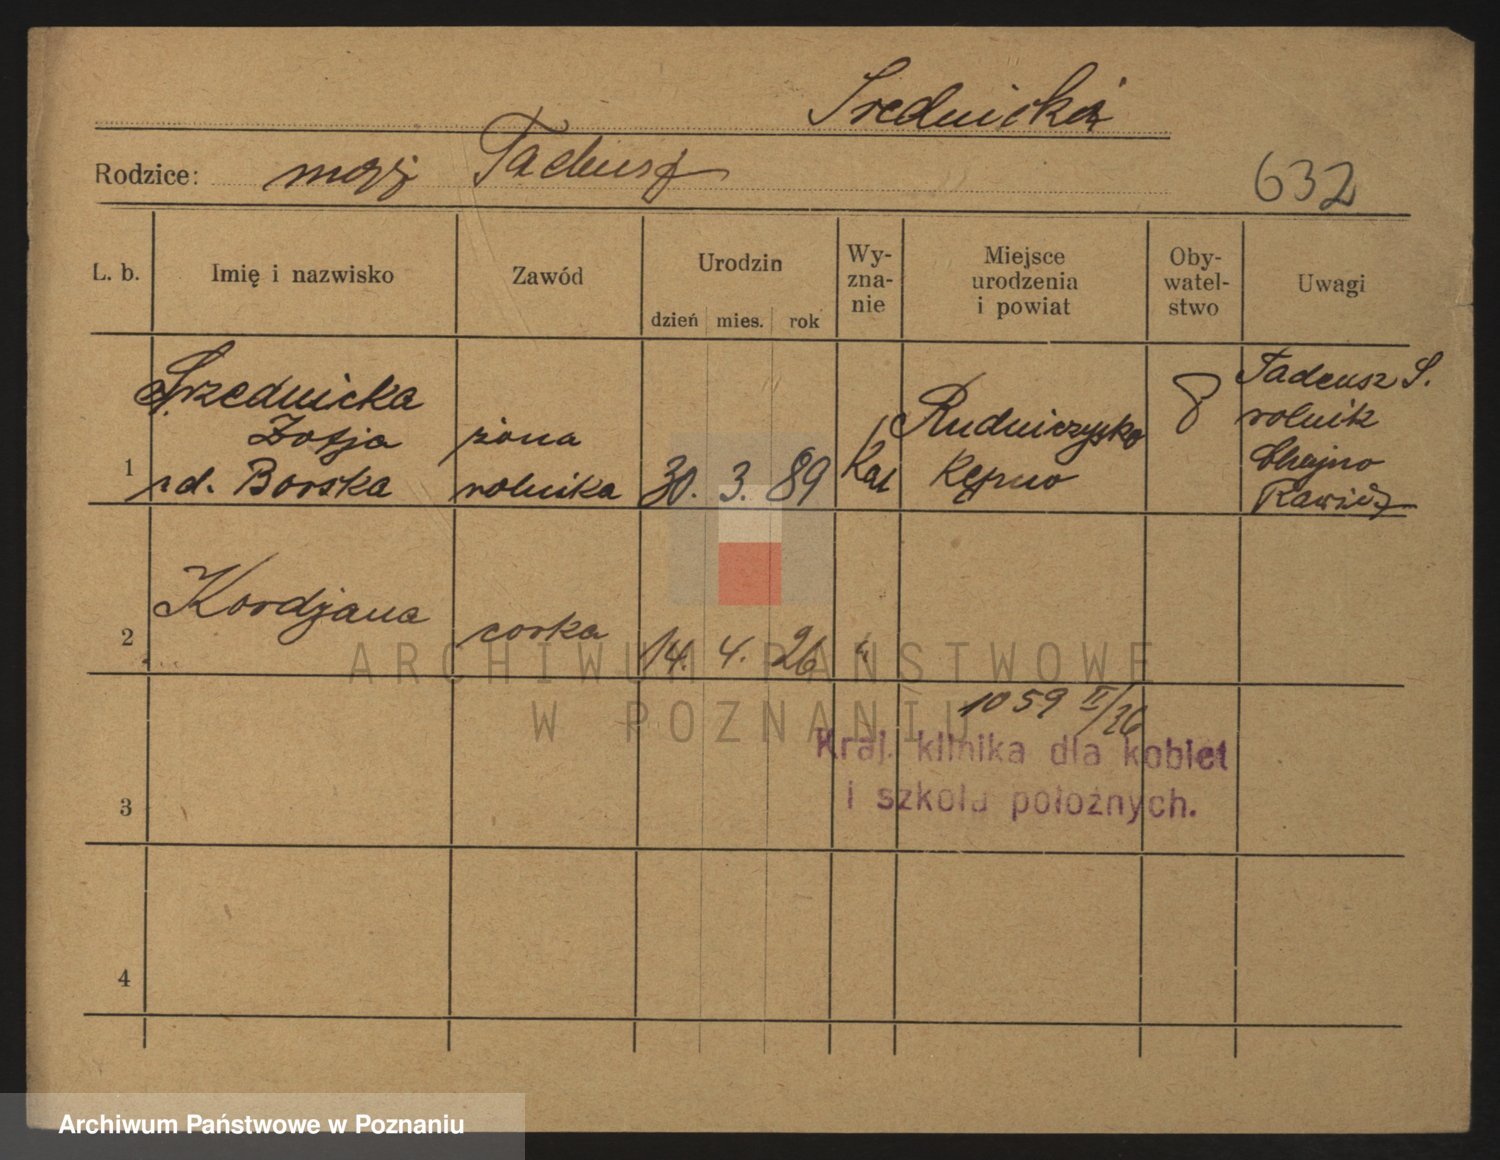 Srednicka
Rodzice: mąż Tadeusz
632
L. b. Imię i nazwisko Zawód Urodzin dzień mies. rok Wy-zna-nie Miejsce urodzenia i powiat Oby-watel-stwo Uwagi
Srzednicka Tadeusz S.
Zofja żona Rudniczysko rolnik
1 rd. Borska rolnika 30. 3. 89 Kat Kępno Chojno
Rawicz
Kordjana
2 corka 14. 4. 26 "
1059 II/26
Kraj. klinika dla kobiet
3 i szkoła położnych.
4
ARCHIWUM PAŃSTWOWE
W POZNANIU
Archiwum Państwowe w Poznaniu